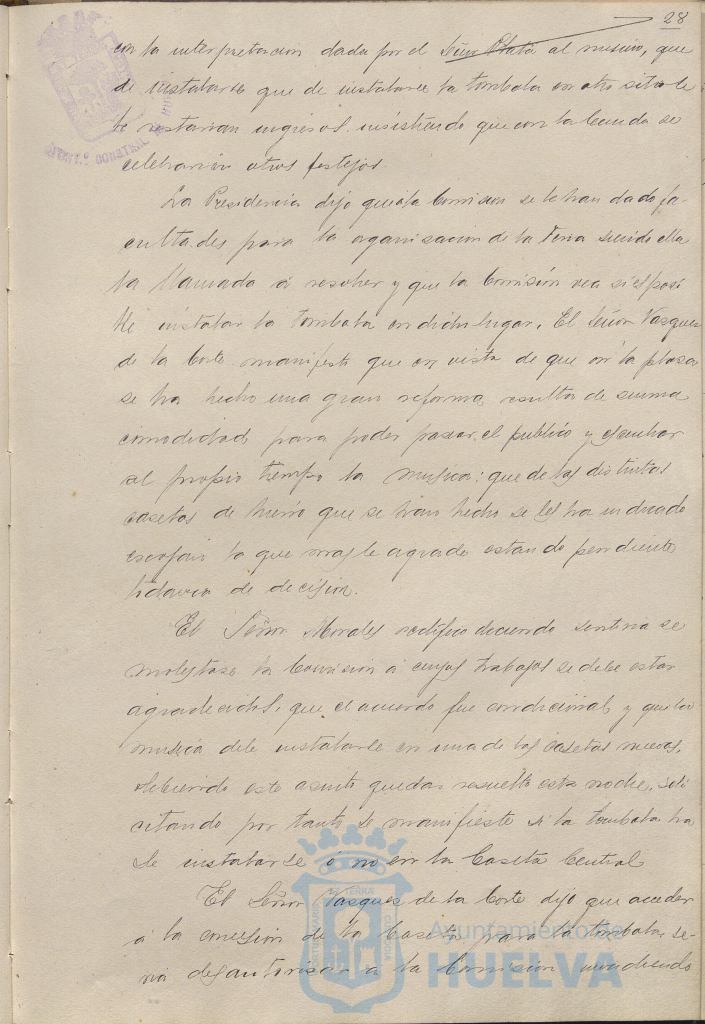 28
con la interpretacion dada por el Señor Plata al mismo, que
de instalarse que de instalarse la tombola en otro sitio se
le restarian ingresos insistiendo que con la banda se
celebrarian otros festejos.
La Presidencia dijo que á la Comision se le han dado fa-
cultades para la organizacion de la Feria siendo ella
la llamada á resolver y que la Comisión vea si es posi
ble instalar la tombola en dicho lugar. El Señor Vazquez
de la Corte manifestó que en vista de que en la plaza
se ha hecho una gran reforma, resulta de suma
comodidad para poder pasear el publico y escuchar
al propio tiempo la musica: que de las distintas
casetas de hierro que se han hecho se les ha indicado
escojan la que mas le agrade estando pendiente
todavia de decision.
El Señor Morales rectificó diciendo sentiria se
molestase la Comisión á cuyos trabajos se debe estar
agradecidos, que el acuerdo fue condicional y que la
musica debe instalarse en una de las casetas nuevas,
debiendo este asunto quedar resuelto esta noche, soli
citando por tanto se manifieste si la tombola ha
de instalarse ó no en la Caseta Central
El Señor Vasques de la Corte dijo que acceder
á la concesion de la Caseta para la tombola se-
ria desautorizar a la Comision
Ayuntamiento de
HUELVA